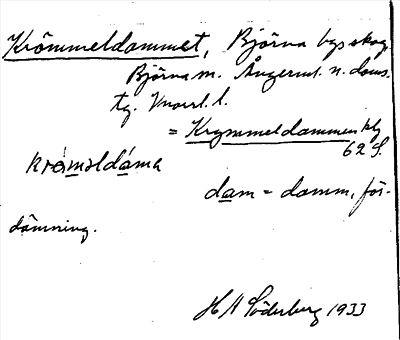 Krömmeldammet, Björna bys skog.
Björna sn. Ångerml. n. doms.
tg. Vnorrl. l.
= Krymmeldammen kbl
62 S.
kråməldáma
dam = damm, för-
dämning.
H Söderberg 1933